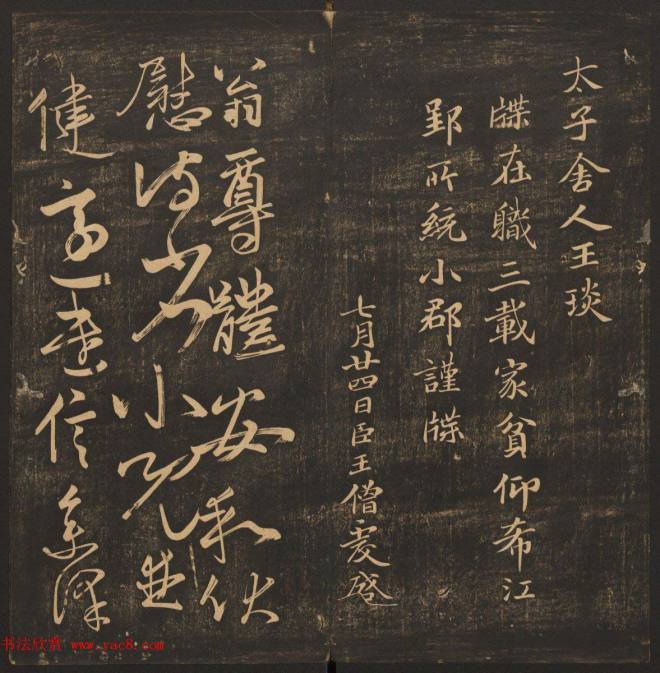 太子舍人王琰
牒在職三載家貧仰希江
郢所統小郡謹牒
七月廿四日臣王僧虔啓
翁尊體安和伏
慰少小兒並
健適遣信
书法欣赏 www.yac8.com